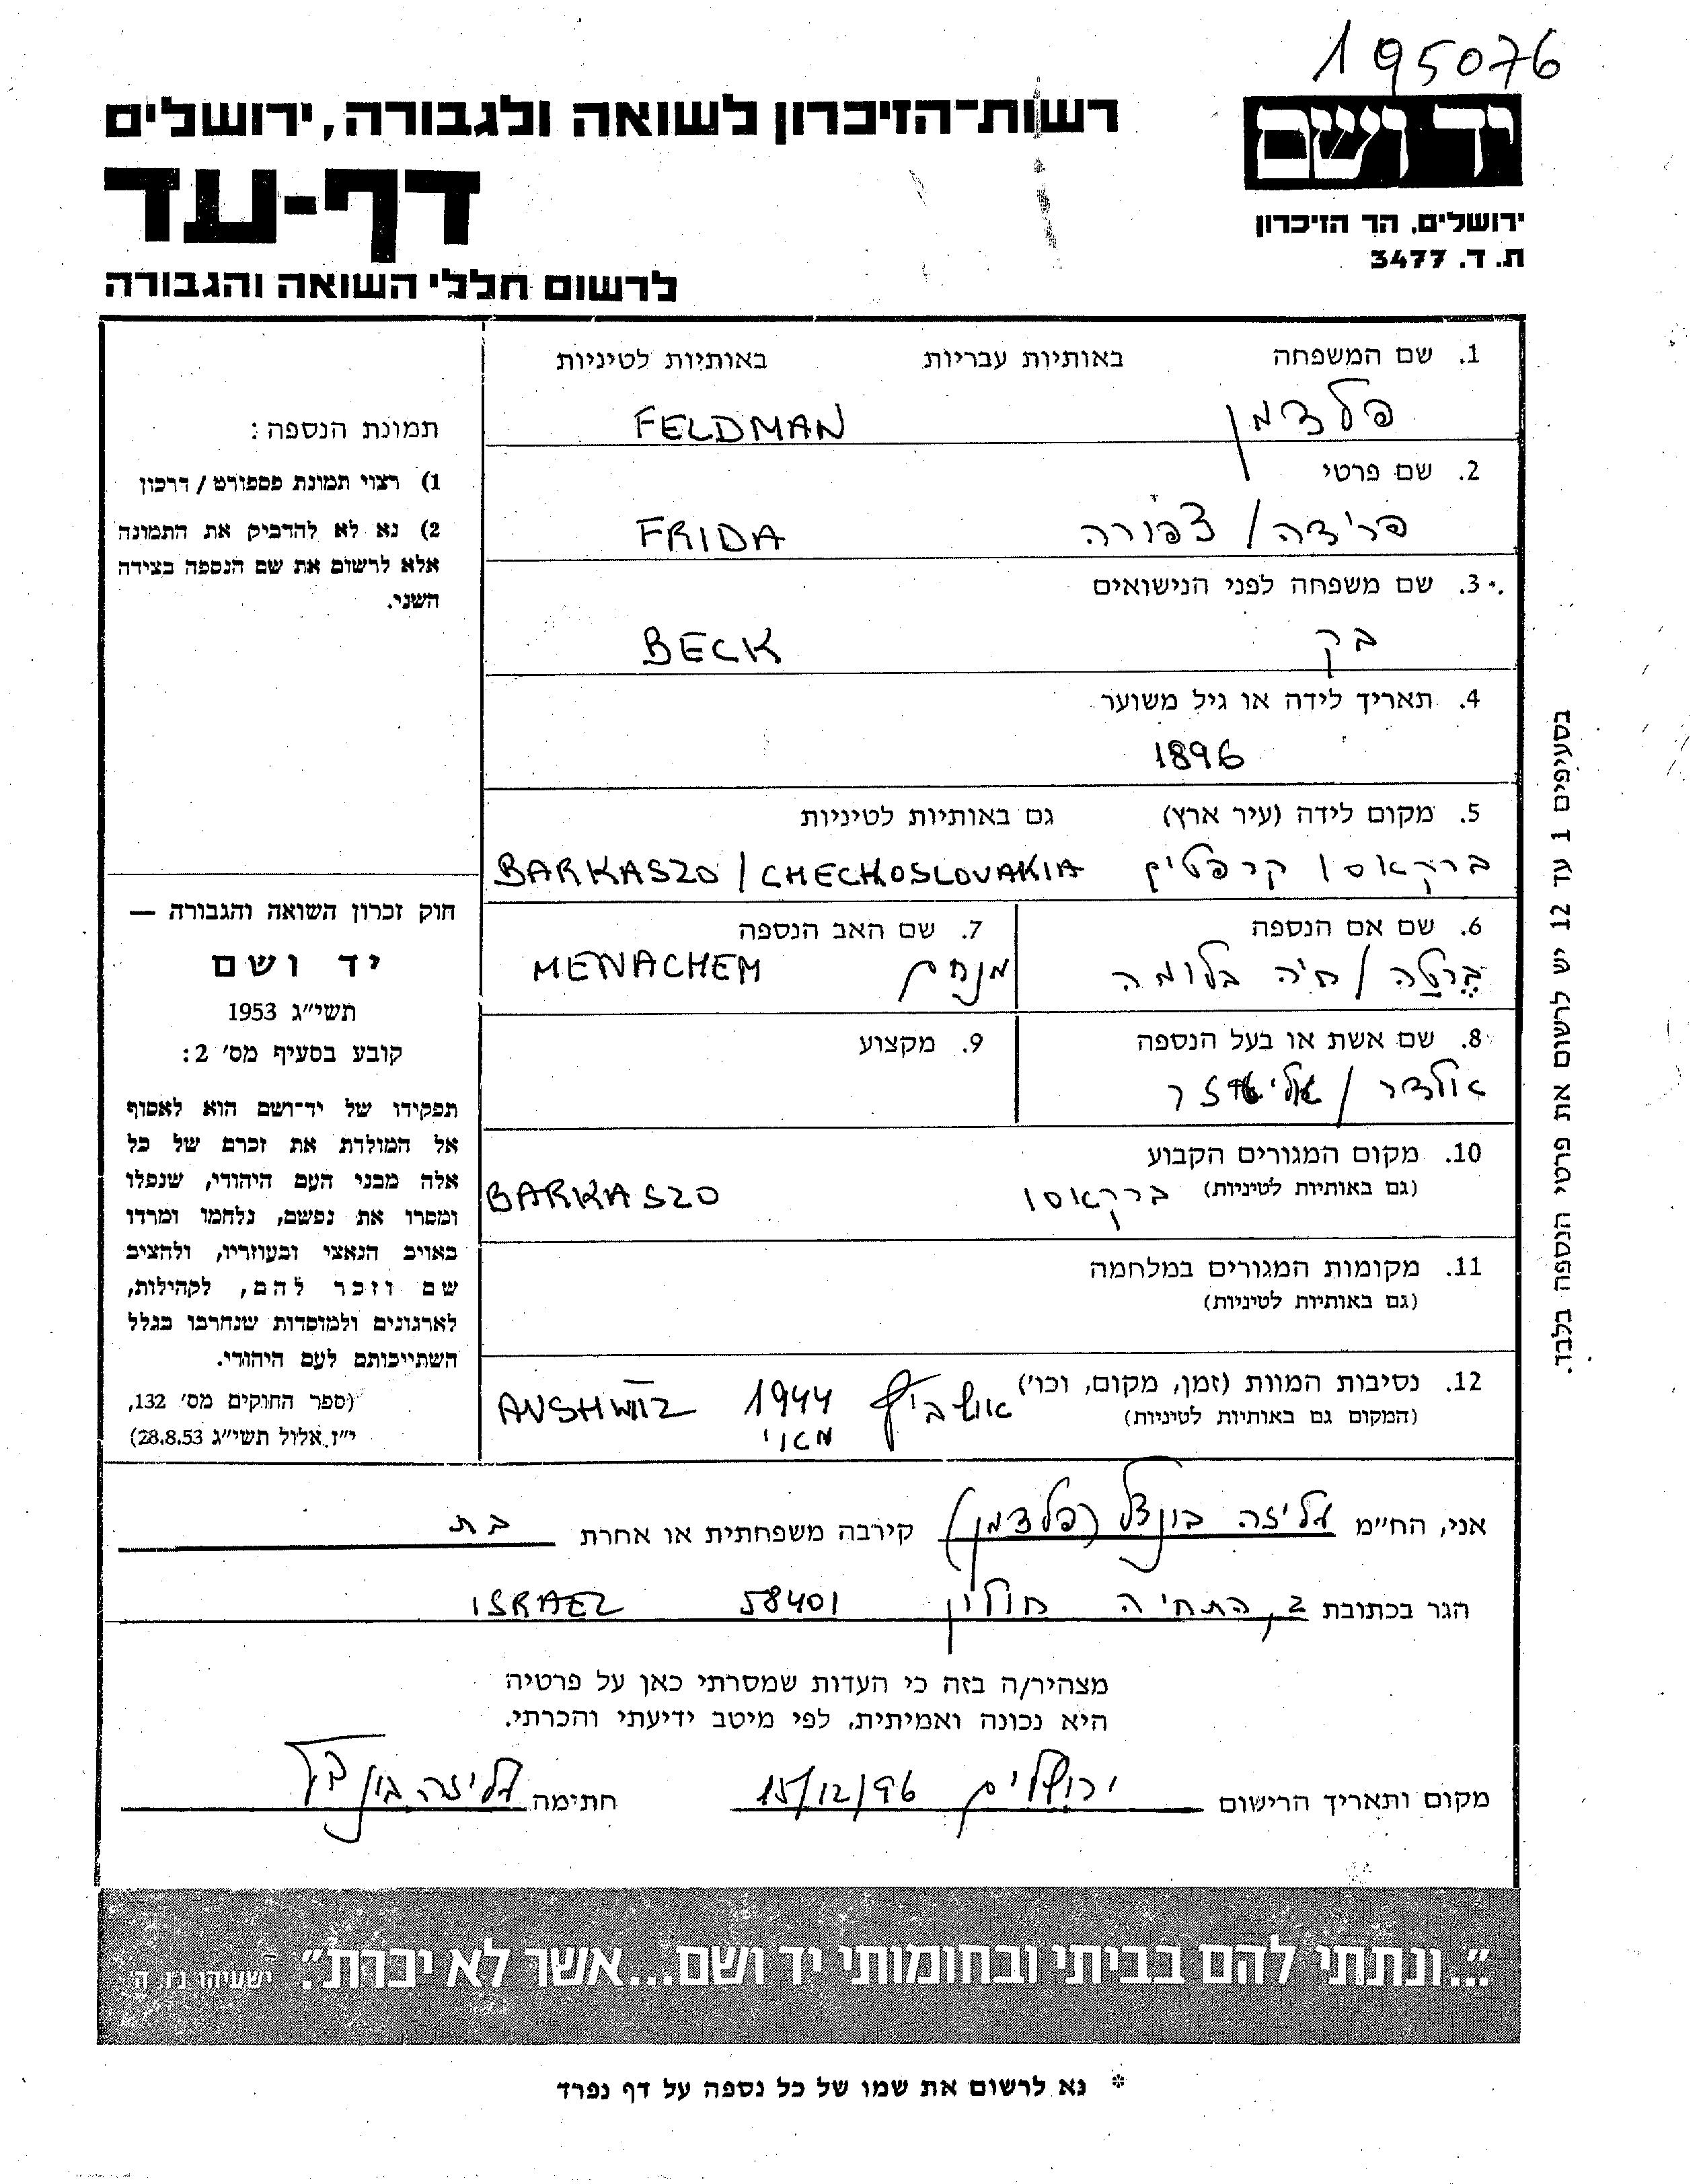 195076
יד ושם
ירושלים, הר הזיכרון
ת. ד. 3477
רשות-הזיכרון לשואה ולגבורה, ירושלים
דף-עד
לרשום חללי השואה והגבורה
1. שם המשפחה באותיות עבריות באותיות לטיניות
פלדמן FELDMAN
2. שם פרטי
פרידה / צפורה FRIDA
3. שם משפחה לפני הנישואים
בק BECK
4. תאריך לידה או גיל משוער
1896
5. מקום לידה (עיר ארץ) גם באותיות לטיניות
ברקאסו קרפטים BARKASZO / CHECHOSLOVAKIA
6. שם אם הנספה
בֶּרטַה / חיה בלומה
7. שם האב הנספה
מנחם MENACHEM
8. שם אשת או בעל הנספה
אולדר / אליעזר
9. מקצוע
10. מקום המגורים הקבוע
(גם באותיות לטיניות) ברקאסו BARKASZO
11. מקומות המגורים במלחמה
(גם באותיות לטיניות)
12. נסיבות המוות (זמן, מקום, וכו') אושביץ 1944 AUSHWITZ
(המקום גם באותיות לטיניות) מאי
תמונת הנספה:
1) רצוי תמונת פספורט / דרכון
2) נא לא להדביק את התמונה
אלא לרשום את שם הנספה בצידה
השני.
חוק זכרון השואה והגבורה —
יד ושם
תשי״ג 1953
קובע בסעיף מס' 2:
תפקידו של יד-ושם הוא לאסוף
אל המולדת את זכרם של כל
אלה מבני העם היהודי, שנפלו
ומסרו את נפשם, נלחמו ומרדו
באויב הנאצי ובעוזריו, ולהציב
שם וזכר להם, לקהילות,
לארגונים ולמוסדות שנחרבו בגלל
השתייכותם לעם היהודי.
(ספר החוקים מס' 132,
י״ז אלול תשי״ג 28.8.53)
בסעיפים 1 עד 12 יש לרשום את פרטי הנספה בלבד.
אני, הח״מ עליזה בונצל (פלדמן) קירבה משפחתית או אחרת בת
הגר בכתובת התחיה חולון 58401 ISRAEL
מצהיר/ה בזה כי העדות שמסרתי כאן על פרטיה
היא נכונה ואמיתית, לפי מיטב ידיעתי והכרתי.
מקום ותאריך הרישום ירושלים 15/12/96 חתימה עליזה בונצל
״...ונתתי להם בביתי ובחומותי יד ושם...אשר לא יכרת״. ישעיהו נו, ה
* נא לרשום את שמו של כל נספה על דף נפרד